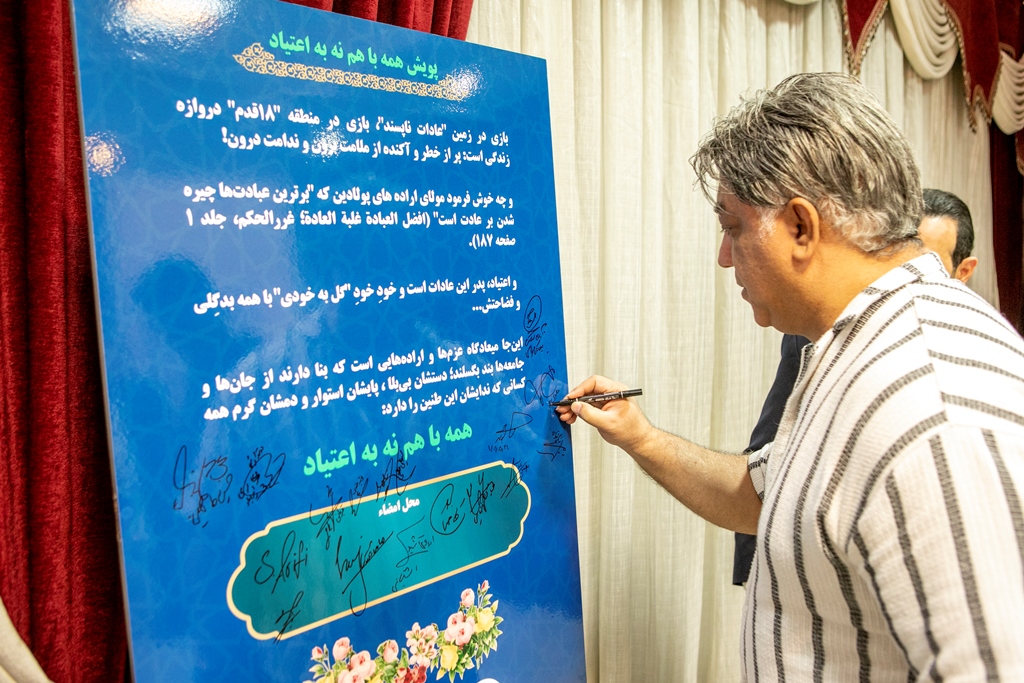 پویش همه با هم نه به اعتیاد
بازی در زمین "عادات ناپسند"، بازی در منطقه "۱۸قدم" دروازه
زندگی است: پر از خطر و آکنده از ملامت برون و ندامت درون!
و چه خوش فرمود مولای اراده های پولادین که "برترین عبادت‌ها چیره
شدن بر عادت است" (افضل العبادة غلبة العادة؛ غررالحکم، جلد ۱
صفحه ۱۸۷).
و اعتیاد، پدر این عادات است و خودِ خودِ "گل به خودی" با همه بدگِلی
و فضاحتش...
این‌جا میعادگاه عزم‌ها و اراده‌هایی است که بنا دارند از جان‌ها و
جامعه‌ها بند بگسلند؛ دستشان بی‌بلا، پایشان استوار و دمشان گرم همه
کسانی که ندایشان این طنین را دارد:
همه با هم نه به اعتیاد
محل امضاء